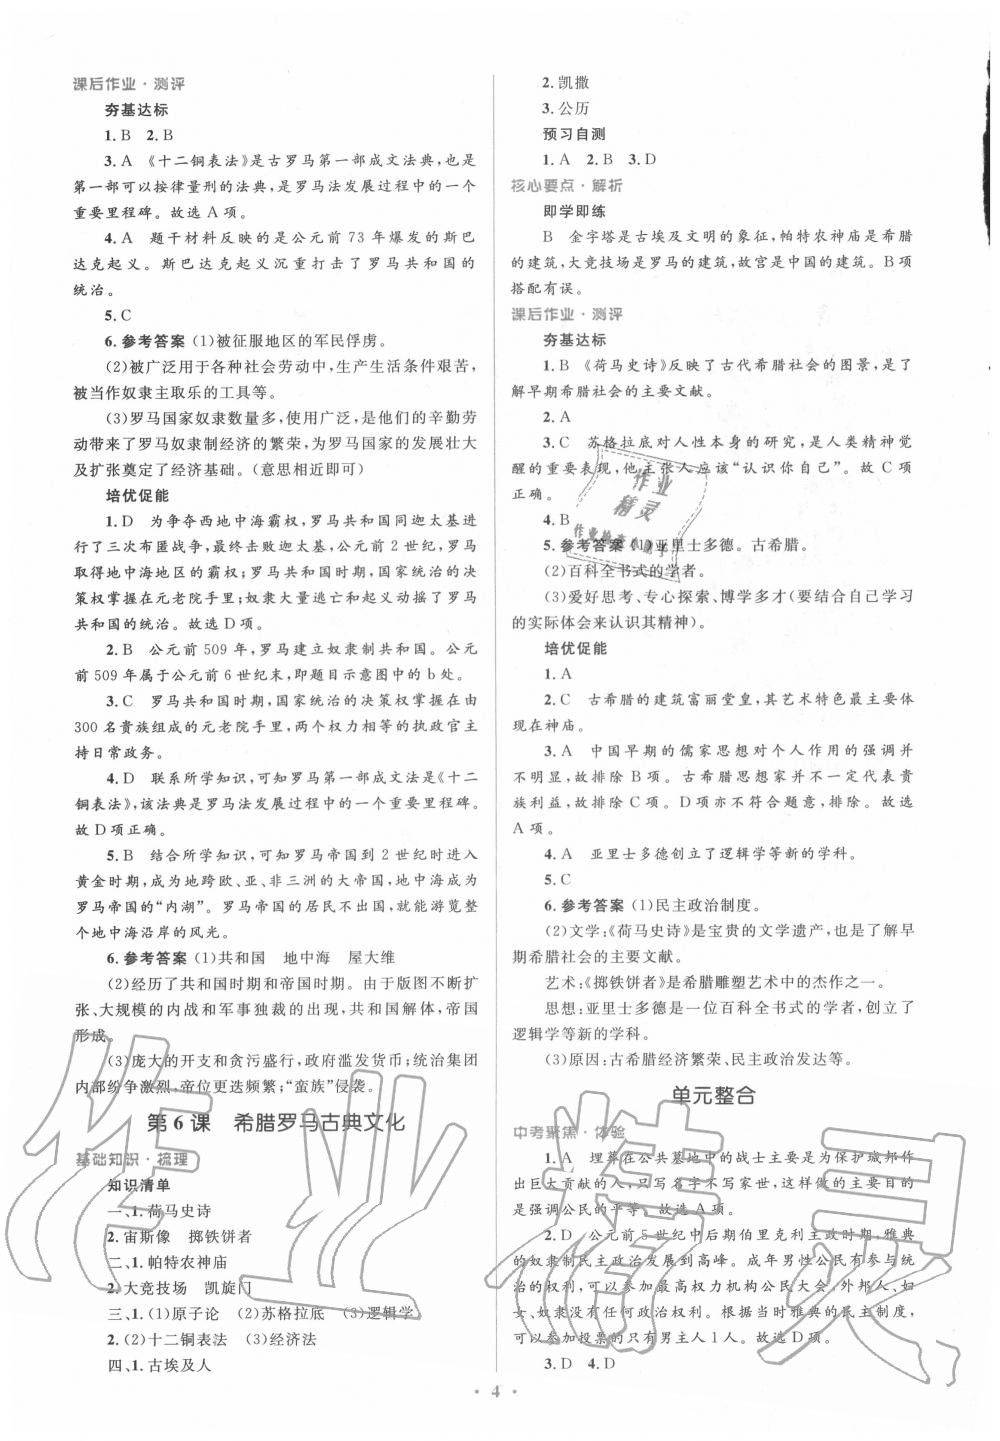 课后作业·测评
夯基达标
1. B  2. B
3. A 《十二铜表法》是古罗马第一部成文法典，也是
第一部可以按律量刑的法典，是罗马法发展过程中的一个
重要里程碑。故选 A 项。
4. A  题干材料反映的是公元前 73 年爆发的斯巴
达克起义。斯巴达克起义沉重打击了罗马共和国的
统治。
5. C
6. 参考答案 (1)被征服地区的军民俘虏。
(2)被广泛用于各种社会劳动中，生产生活条件艰苦，
被当作奴隶主取乐的工具等。
(3)罗马国家奴隶数量多，使用广泛，是他们的辛勤劳
动带来了罗马奴隶制经济的繁荣，为罗马国家的发展壮大
及扩张奠定了经济基础。(意思相近即可)
培优促能
1. D  为争夺西地中海霸权，罗马共和国同迦太基进
行了三次布匿战争，最终击败迦太基，公元前 2 世纪，罗马
取得地中海地区的霸权；罗马共和国时期，国家统治的决
策权掌握在元老院手里；奴隶大量逃亡和起义动摇了罗马
共和国的统治。故选 D 项。
2. B  公元前 509 年，罗马建立奴隶制共和国，公元
前 509 年属于公元前 6 世纪末，即题目示意图中的 b 处。
3. C  罗马共和国时期，国家统治的决策权掌握在由
300 名贵族组成的元老院手里，两个权力相等的执政官主
持日常政务。
4. D  联系所学知识，可知罗马第一部成文法是《十二
铜表法》，该法典是罗马法发展过程中的一个重要里程碑。
故 D 项正确。
5. B  结合所学知识，可知罗马帝国到 2 世纪时进入
黄金时期，成为地跨欧、亚、非三洲的大帝国，地中海成为
罗马帝国的“内湖”。罗马帝国的居民不出国，就能游览整
个地中海沿岸的风光。
6. 参考答案 (1)共和国  地中海  屋大维
(2)经历了共和国时期和帝国时期。由于版图不断扩
张、大规模的内战和军事独裁的出现，共和国解体，帝国
形成。
(3)庞大的开支和贪污盛行，政府滥发货币；统治集团
内部纷争激烈，帝位更迭频繁；“蛮族”侵袭。
第 6 课  希腊罗马古典文化
基础知识·梳理
知识清单
一、1. 荷马史诗
2. 宙斯像  掷铁饼者
二、1. 帕特农神庙
2. 大竞技场  凯旋门
三、1. (1)原子论  (2)苏格拉底  (3)逻辑学
2. (2)十二铜表法  (3)经济法
四、1. 古埃及人
2. 凯撒
3. 公历
预习自测
1. A  2. B  3. D
核心要点·解析
即学即练
B  金字塔是古埃及文明的象征，帕特农神庙是希腊
的建筑，大竞技场是罗马的建筑，故宫是中国的建筑。B 项
搭配有误。
课后作业·测评
夯基达标
1. B 《荷马史诗》反映了古代希腊社会的图景，是了
解早期希腊社会的主要文献。
2. A
3. C  苏格拉底对人性本身的研究，是人类精神觉
醒的重要表现，他主张人应该“认识你自己”。故 C 项
正确。
4. B
5. 参考答案 (1)亚里士多德。古希腊。
(2)百科全书式的学者。
(3)爱好思考、专心探索、博学多才(要结合自己学习
的实际体会来认识其精神)。
培优促能
1. A
2. C  古希腊的建筑富丽堂皇，其艺术特色最主要体
现在神庙。
3. A  中国早期的儒家思想对个人作用的强调并
不明显，故排除 B 项。古希腊思想家并不一定代表贵
族利益，故排除 C 项。D 项亦不符合题意，排除。故选
A 项。
4. A  亚里士多德创立了逻辑学等新的学科。
5. C
6. 参考答案 (1)民主政治制度。
(2)文学：《荷马史诗》是宝贵的文学遗产，也是了解早
期希腊社会的主要文献。
艺术：《掷铁饼者》是希腊雕塑艺术中的杰作之一。
思想：亚里士多德是一位百科全书式的学者，创立了
逻辑学等新的学科。
(3)原因：古希腊经济繁荣、民主政治发达等。
单元整合
中考聚焦·体验
1. A  埋葬在公共墓地中的战士主要是为保护城邦作
出巨大贡献的人，只写名字不写家世，这样做的主要目的是
强调公民的平等。故选 A 项。
2. D  公元前 5 世纪中后期伯里克利主政时期，雅典
的奴隶制民主政治发展到高峰。成年男性公民有参与统
治的权利，可以参加最高权力机构公民大会，外邦人、妇
女、奴隶没有任何政治权利。根据当时雅典的民主制度，
可以参加投票的只有男主人 1 人。故选 D 项。
3. D  4. D
· 4 ·
作业
精灵
作业精灵